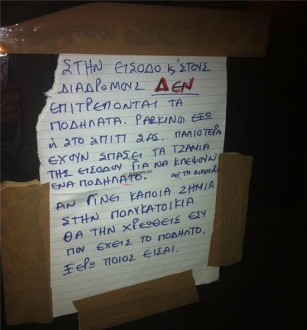 ΣΤΗΝ ΕΙΣΟΔΟ Κ' ΣΤΟΥΣ
ΔΙΑΔΡΟΜΟΥΣ ΔΕΝ
ΕΠΙΤΡΕΠΟΝΤΑΙ ΤΑ
ΠΟΔΗΛΑΤΑ. PARKING ΕΞΩ
Ή ΣΤΟ ΣΠΙΤΙ ΣΑΣ. ΠΑΛΙΟΤΕΡΑ
ΕΧΟΥΝ ΣΠΑΣΕΙ ΤΑ ΤΖΑΜΙΑ
ΤΗΣ ΕΙΣΟΔΟΥ ΓΙΑ ΝΑ ΚΛΕΨΟΥΝ
ΕΝΑ ΠΟΔΗΛΑΤΟ.
ΑΝ ΓΙΝΕΙ ΚΑΠΟΙΑ ΖΗΜΙΑ
ΣΤΗΝ ΠΟΛΥΚΑΤΟΙΚΙΑ
ΘΑ ΤΗΝ ΧΡΕΩΘΕΙΣ ΕΣΥ
ΠΟΥ ΕΧΕΙΣ ΤΟ ΠΟΔΗΛΤΟ.
ΞΕΡΩ ΠΟΙΟΣ ΕΙΣΑΙ.